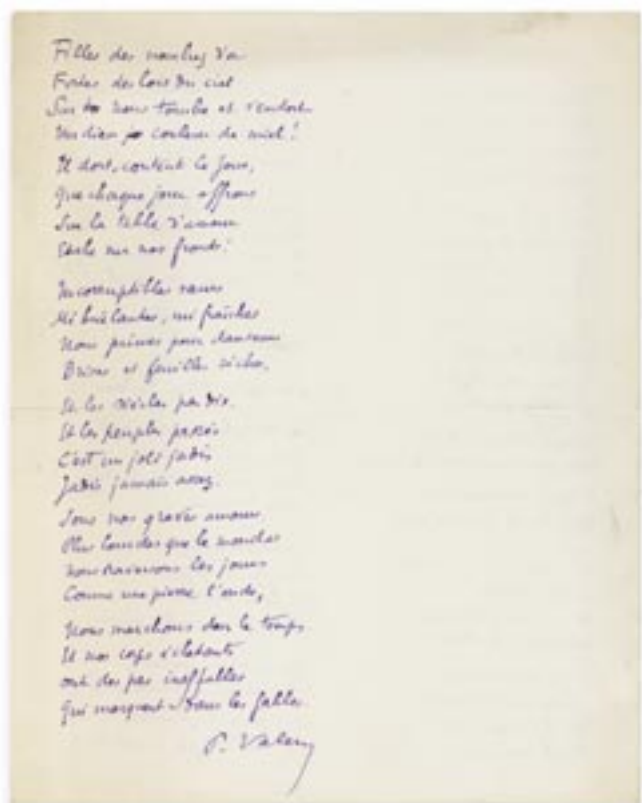 Filles des nombres d'or
Fortes des lois du ciel
Sur nous tombe et s'endort
Un dieu couleur de miel!
Il dort, content le jour,
Que chaque jour offrons
Sur la table d'amour
Étale sur nos fronts.
Incorruptibles sœurs
Mi brûlantes, mi fraîches
Nous prîmes pour danseurs
Brises et feuilles sèches,
Et les siècles par dix.
Et les peuples passés
C'est un joli jadis
Jadis jamais assez.
Sous nos graves amours
Plus lourdes que le monde
Nous traversons les jours
Comme une pierre l'onde,
Nous marchons dans le temps
Et nos corps éclatants
ont des pas ineffables
Qui marquent dans les fables.
P. Valéry